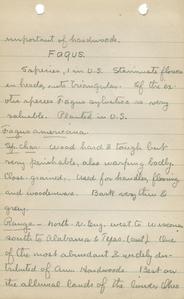 important of hardwoods.
Fagus.
5 species, 1 in U.S. Staminate flowers
in heads, nuts triangular. Of the ex
otic species Fagus sylvatica is very
valuable. Planted in U.S.
Fagus americana.
Sp. char. Wood hard & tough but
very perishable, also warping badly.
Close grained. Used for handles, flooring
and woodenware. Bark very thin &
grey.
Range - north N. Eng. west to Wiscon
south to Alabama & Texas. (east) One
of the most abundant & widely dis-
tributed of Am. Hardwoods. Best on
the alluvial lands of the lower Ohio